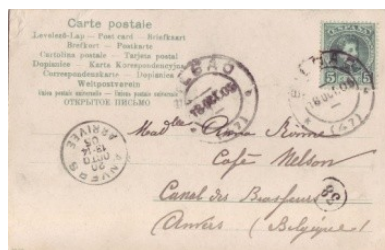 Carte postale
Levelező-Lap — Post card — Briefkaart
Brefkort — Postkarte
Cartolina postale — Tarjeta postal
Dopisnice — Karta Korespondencyjna
Correspondenzkarte — Dopisnica
Weltpostverein
Union postale universelle — Union postale universelle
ОТКРЫТОЕ ПИСЬМО
ESPAÑA
5 5
BILBAO
(27)
Madlle Anna
Café Nelson
Canal des Brasseurs
Anvers (Belgique)
ANVERS
ARRIVÉE
20
OCTO
38